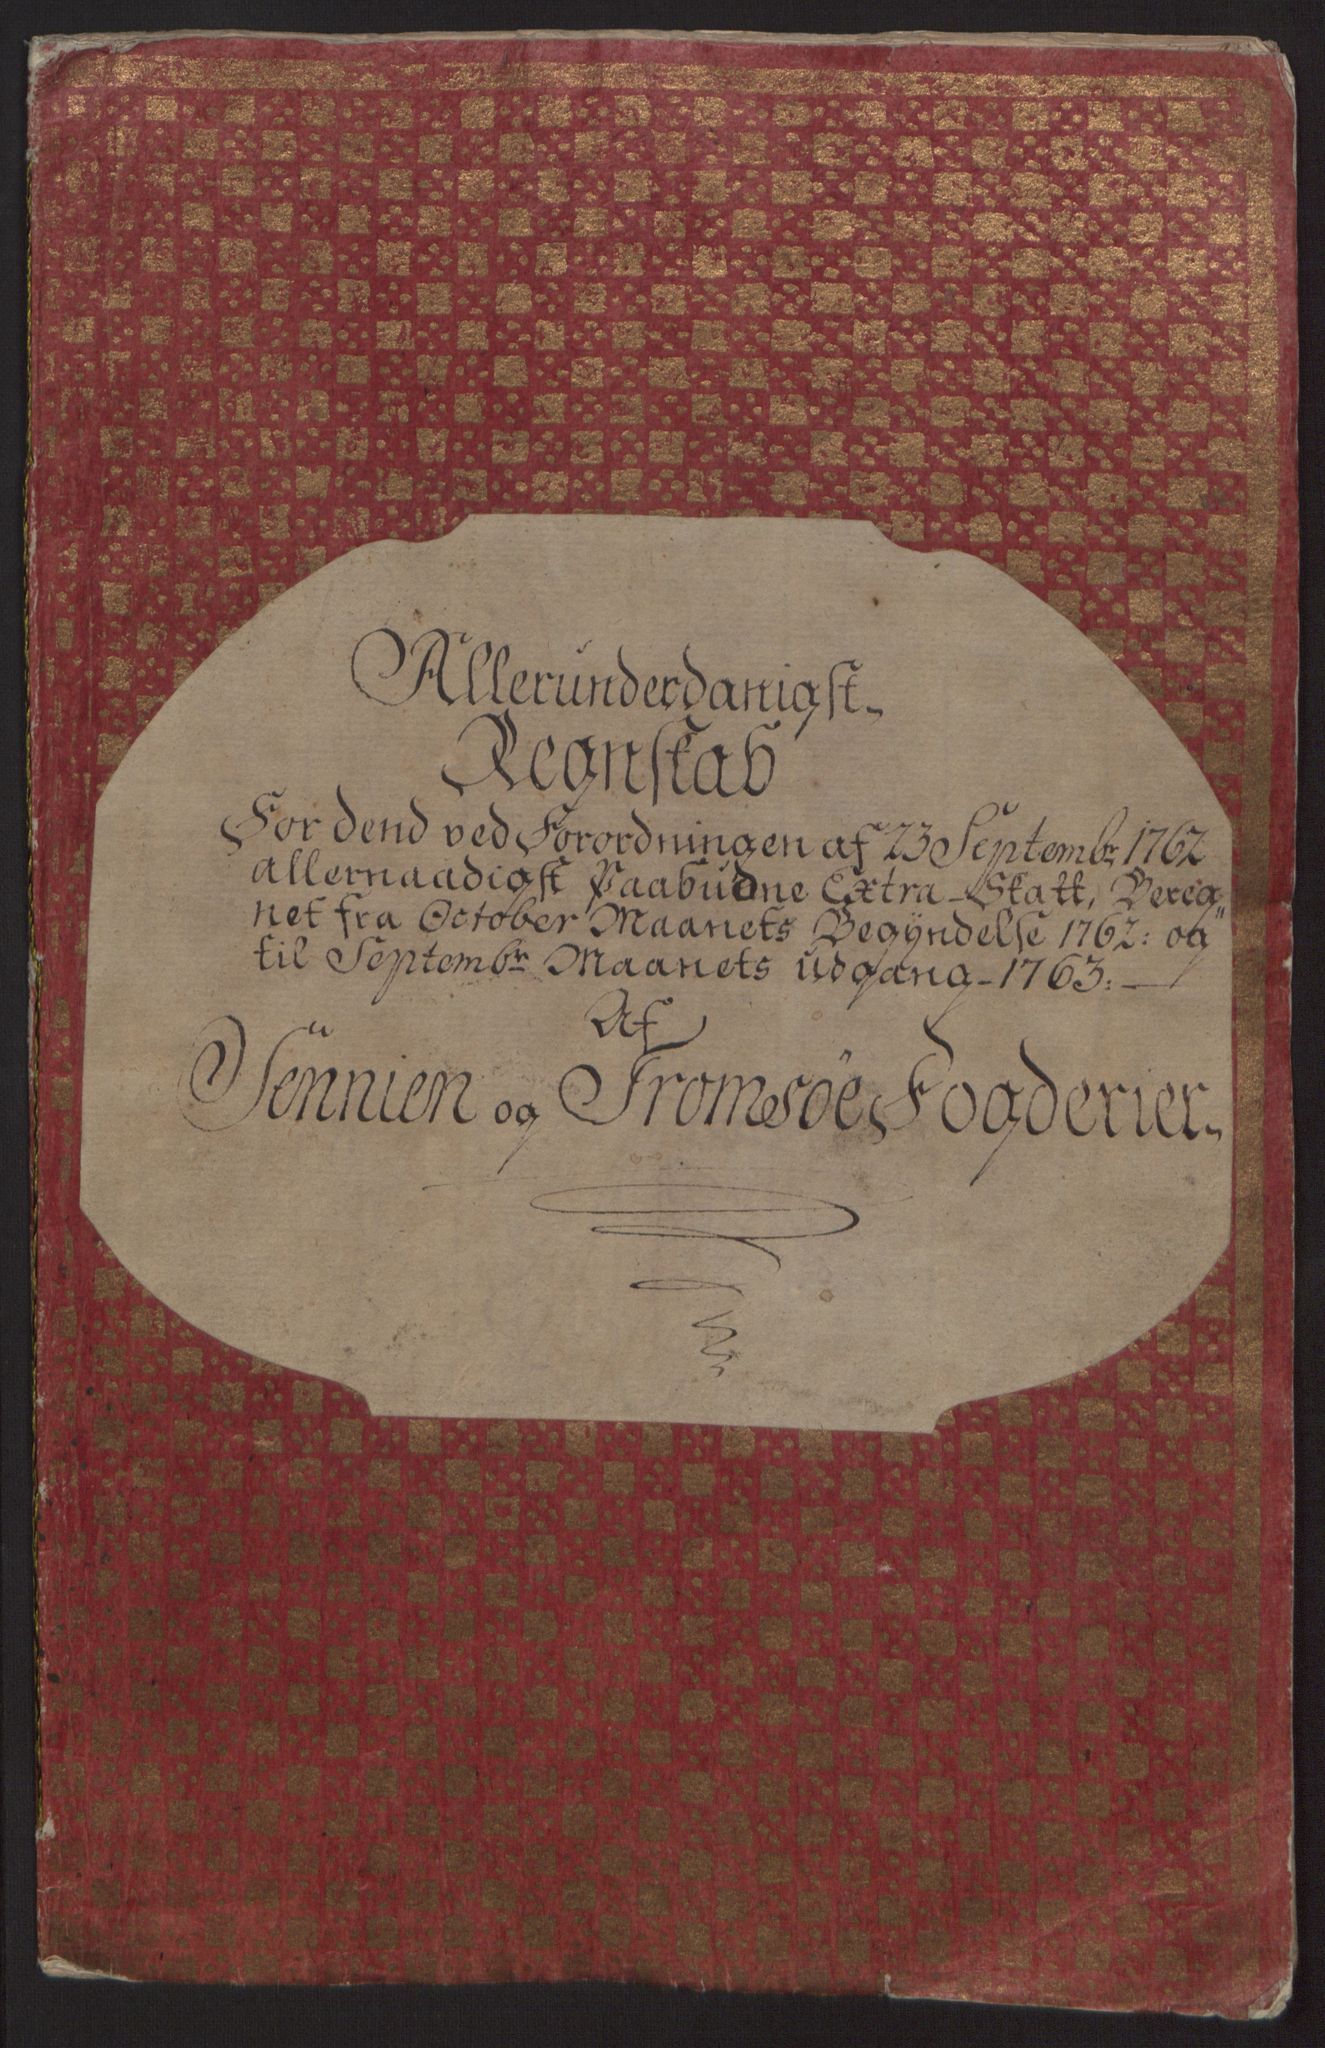 Allerunderdanigst
Regnskab
For dend ved Forordningen af 23 Septembr 1762
allernaadigst Paabudne Extra-Skatt, Bereg"
net fra October Maanets Begÿndelse 1762: og
til Septembr Maanets udgang - 1763:
Af
Sennien og Tromsöe Fogderier